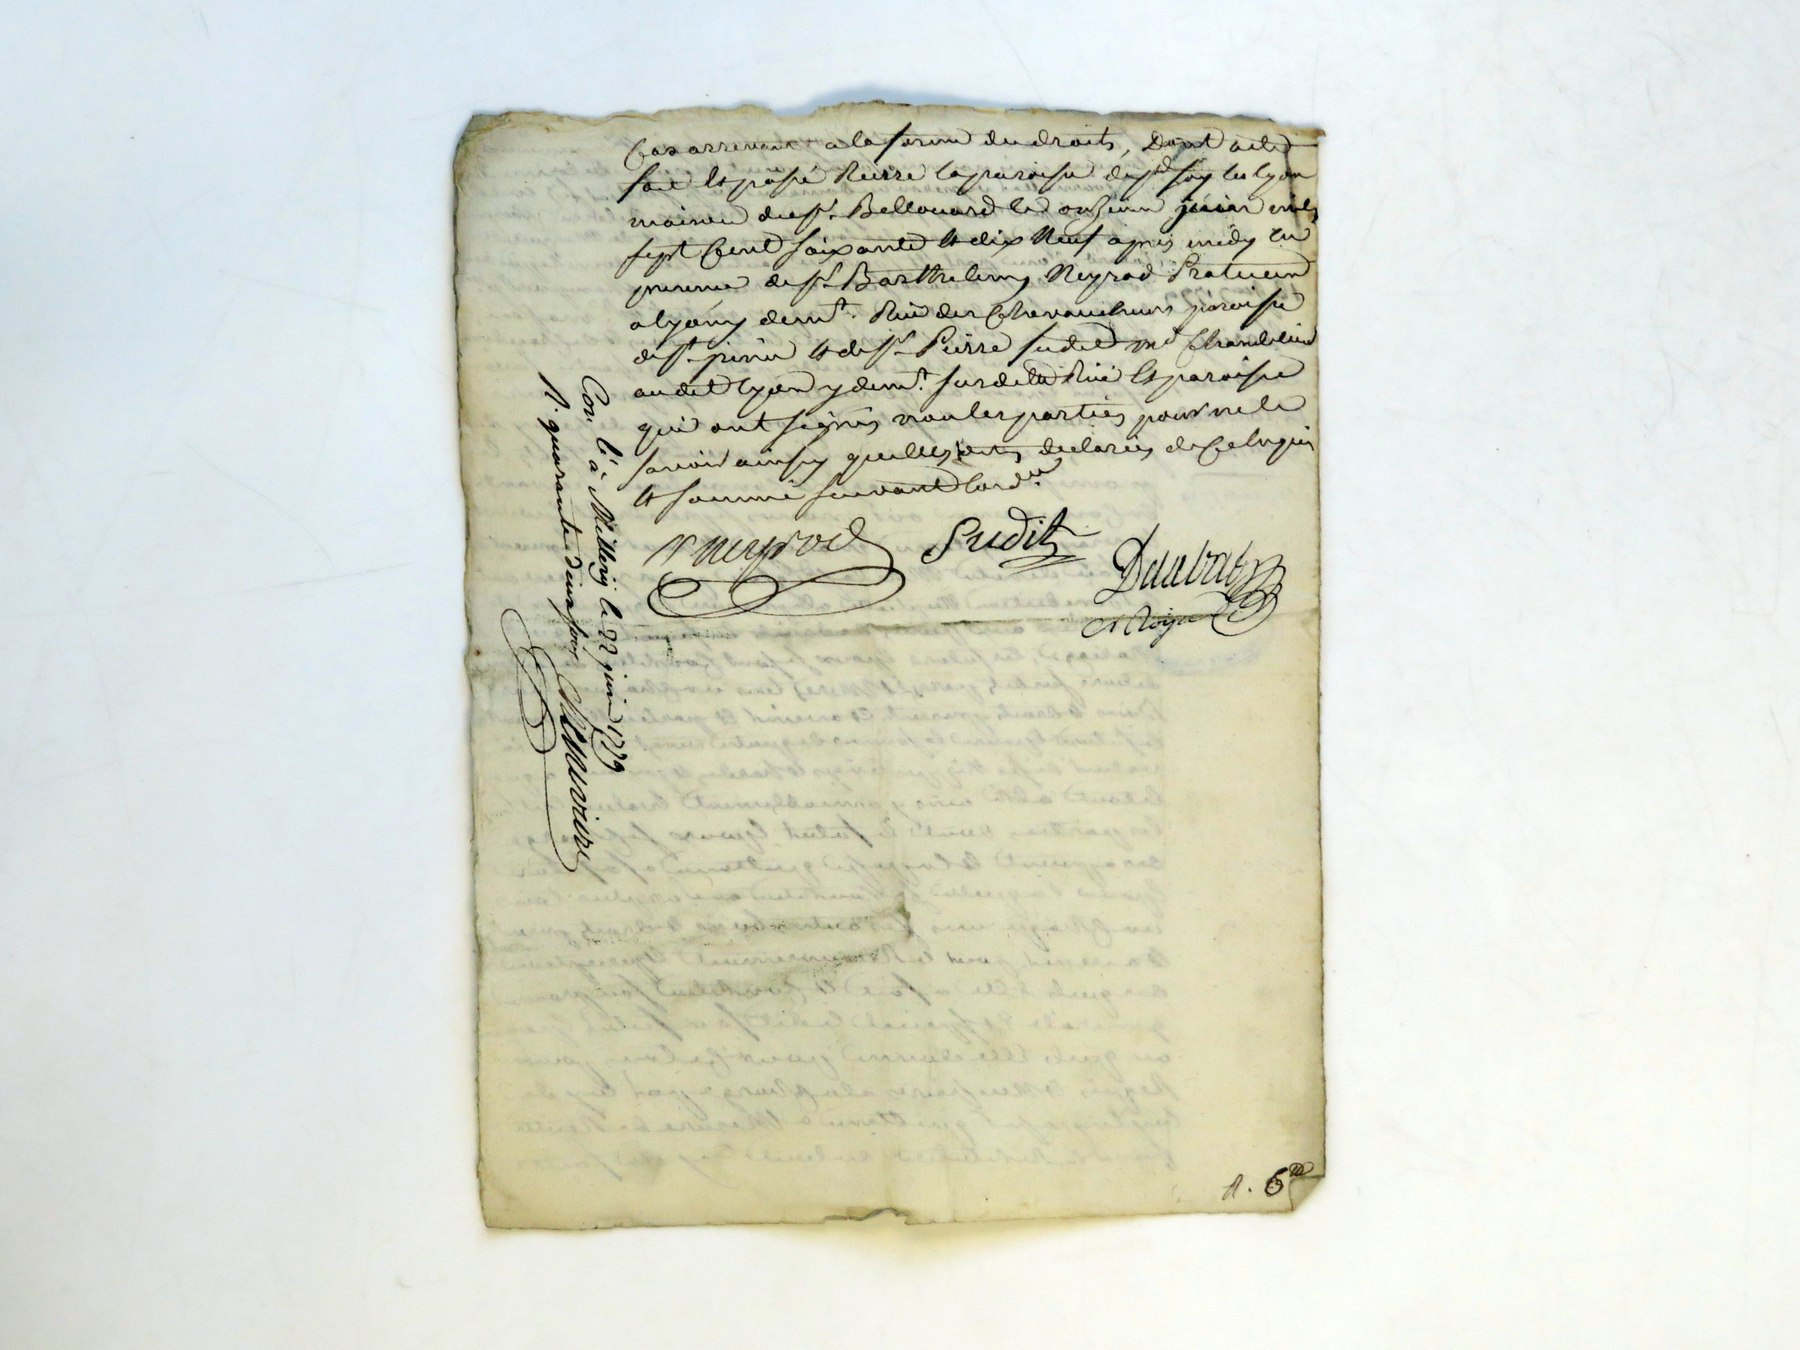 Cas arrivant a la forme du droits, Dont acte
fait et passé Rierre la paroisse de ste foy les lyon
maison du sr. Bellouard le onzieme juin mil
sept Cent soixante et dix Neuf après midy en
presence de sr. Barthelemy Neyrod Praticien
a lyon y demt. Rue des Chevaucheurs paroisse
de st. jrenée et de sr. Pierre sudit md Chandelier
au dit lyon y demt. susdite Rüe et paroisse
qui ont signés non les parties pour ne le
savoir ainsy quelles ont declarées de Ce Enquis
et sommé suivant lord.
neyrod Sudit
Daubat
Con. lé à Millery le 22 juin 1779
R. quarante deux sous
R. 6